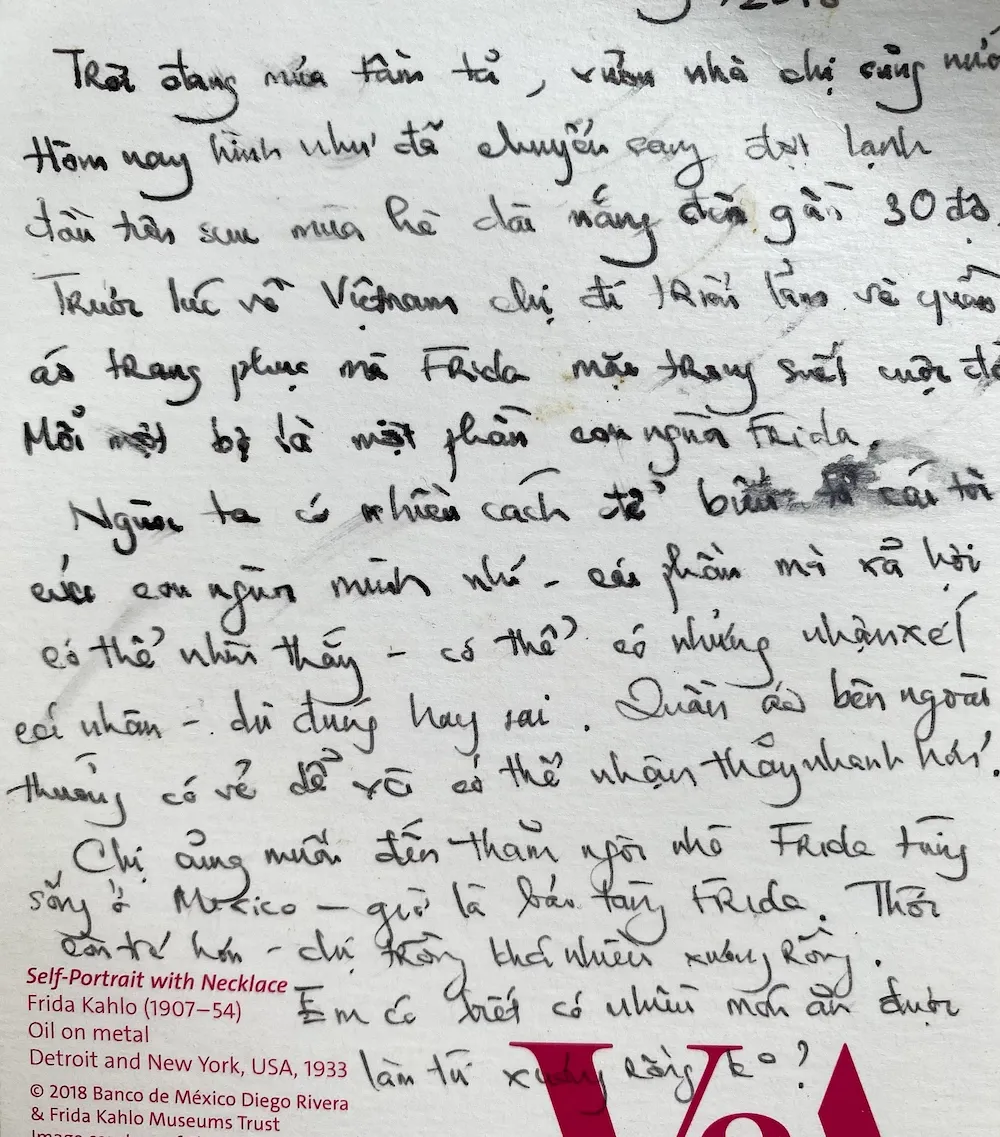 /2018
Trời đang mưa tầm tả, vườn nhà chị sũng nước
Hôm nay hình như đã chuyển sang đợt lạnh
đầu tiên sau mùa hè dài nắng đến gần 30 độ.
Trước lúc về Việtnam chị đi triển lãm về quần
áo trang phục mà Frida mặc trong suốt cuộc đời
Mỗi một bộ là một phần con người Frida.
Người ta có nhiều cách để biểu tả cái tôi
của con người mình nhỉ - cái phần mà xã hội
có thể nhìn thấy - có thể có những nhận xét
cái nhân - dù đúng hay sai. Quần áo bên ngoài
thường có vẻ dễ và có thể nhận thấy nhanh hơn.
Chị cũng muốn đến thăm ngôi nhà Frida từng
sống ở Mexico - giờ là bảo tàng Frida. Thời
còn trẻ hơn - chị trồng khá nhiều xương rồng.
Self-Portrait with Necklace
Em có biết có nhiều món ăn được
Frida Kahlo (1907–54)
Oil on metal
Detroit and New York, USA, 1933
làm từ xương rồng ko?
© 2018 Banco de México Diego Rivera
& Frida Kahlo Museums Trust
V&A